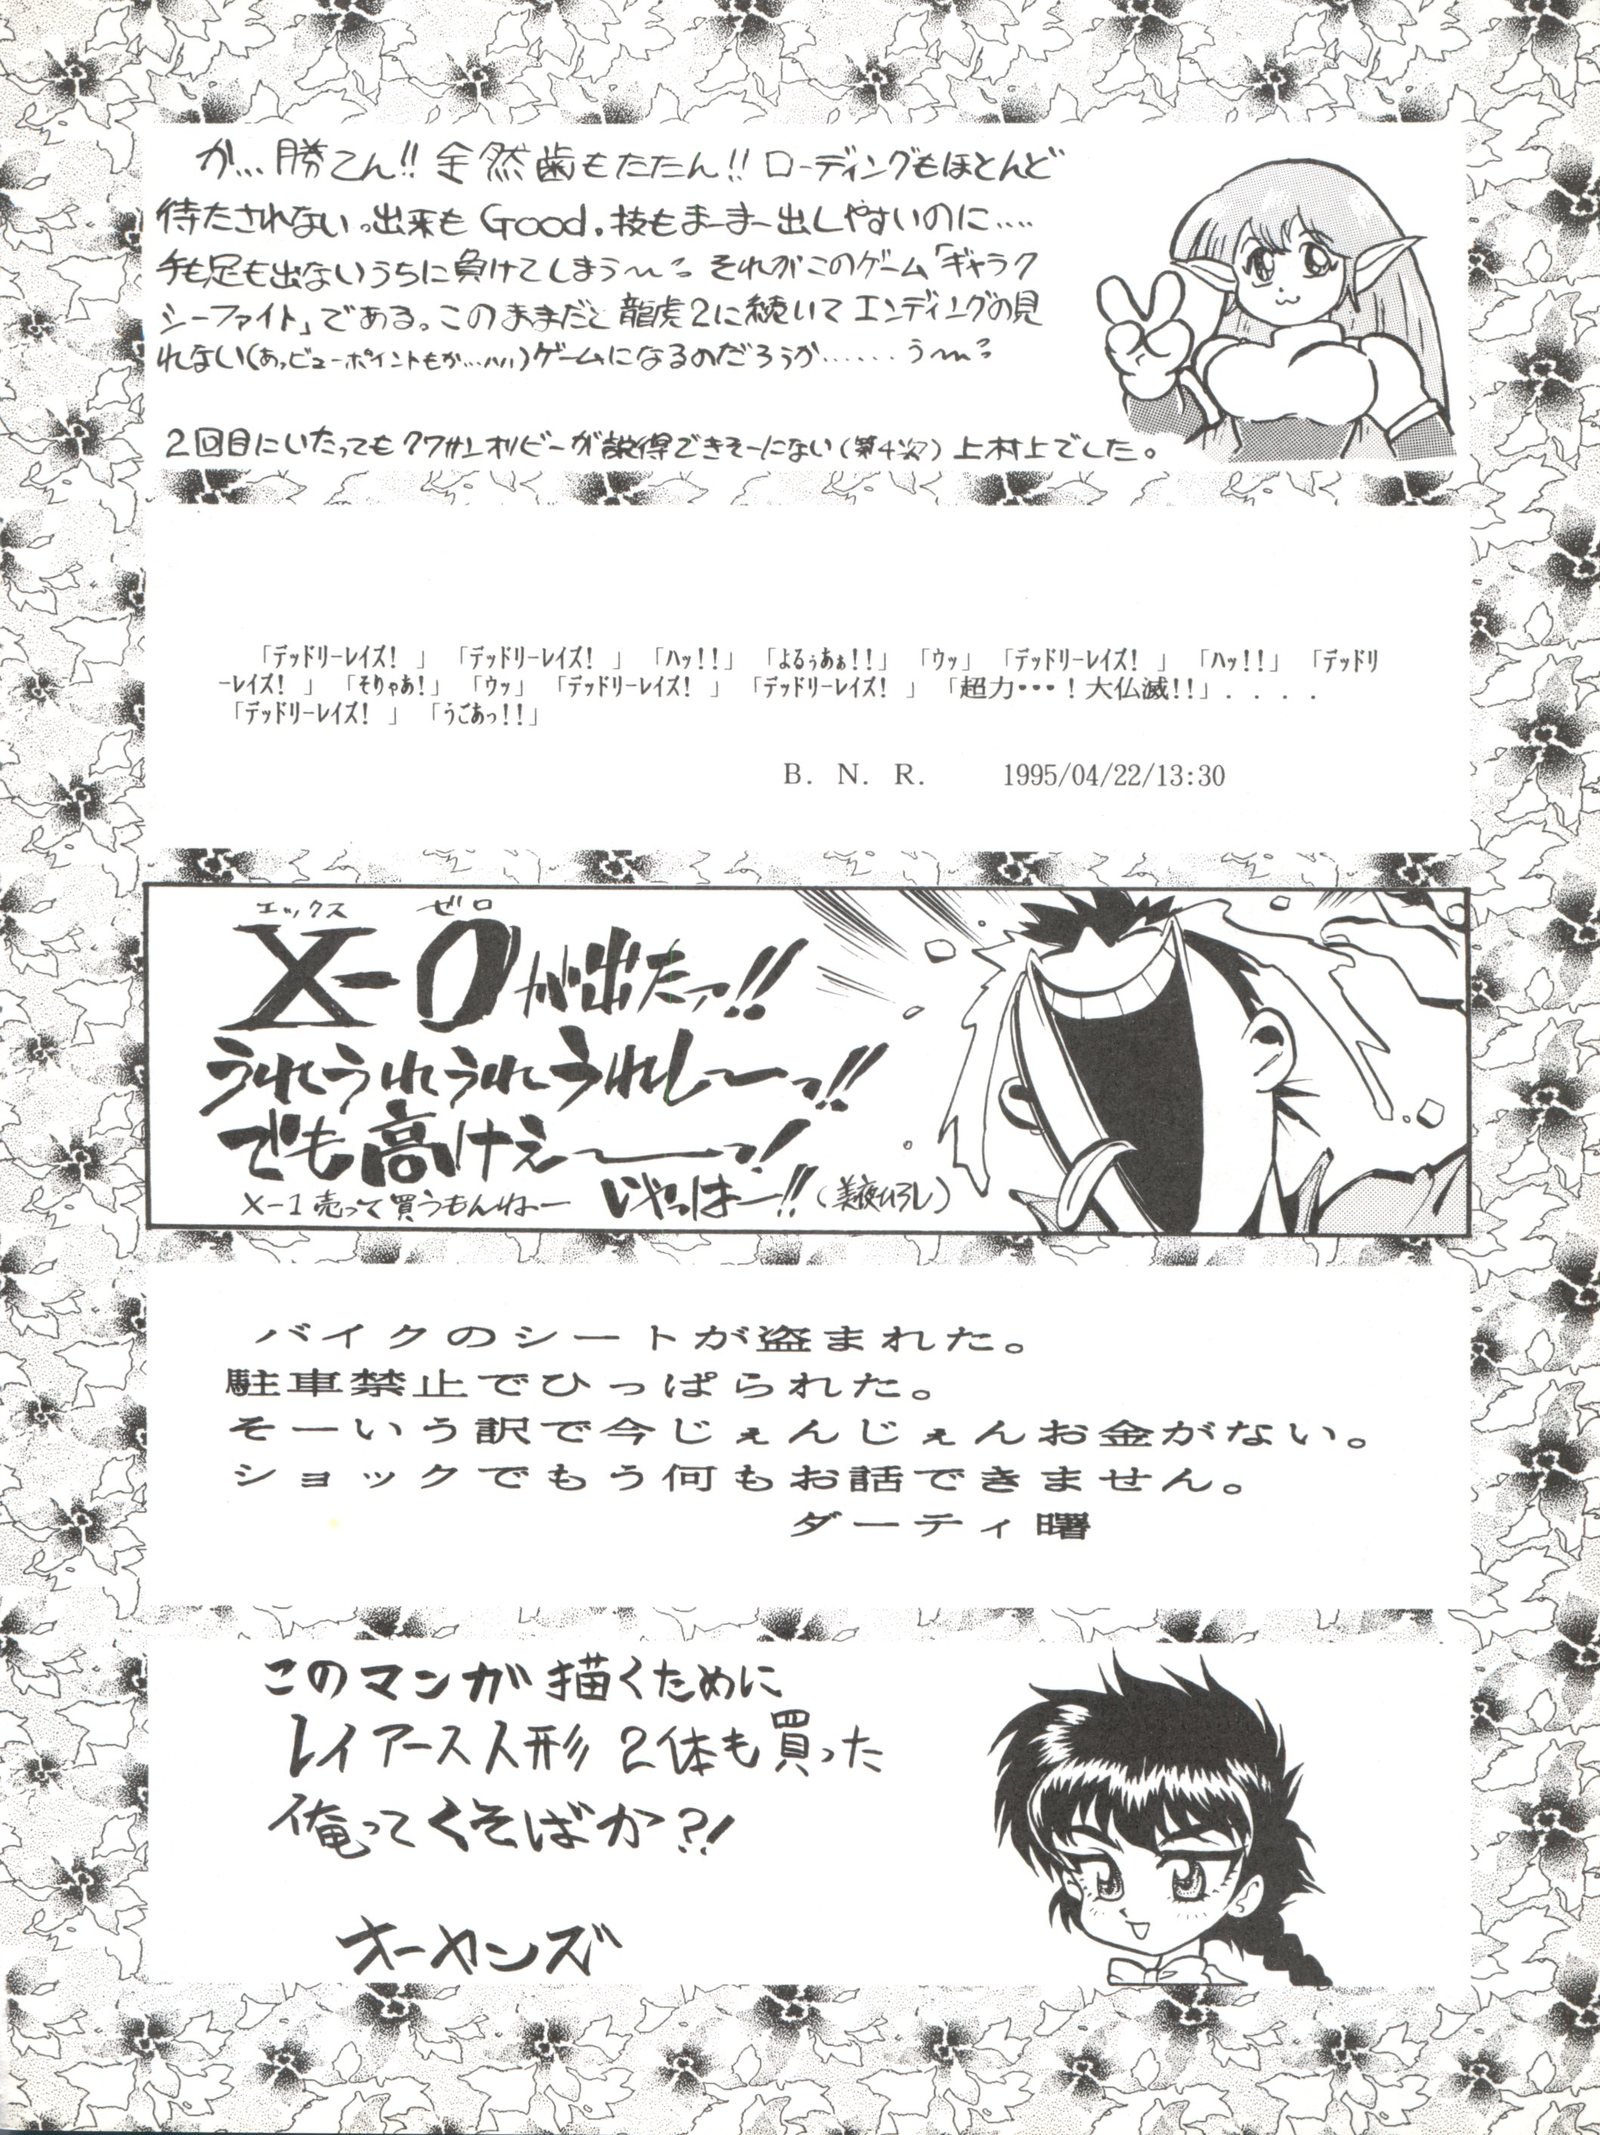 が…勝てん!!全然歯もたたん!!ローディングもほとんど
待たされないっ出来もGood。技もまーまー出しやすいのに……
手も足も出ないうちに負けてしまう〜〜。それがこのゲーム「ギャラク
シーファイト」である。このままだと龍虎2に続いてエンディングの見
れない(あっビューポイントもか…)ゲームになるのだろうか……う〜〜
2回目にいたってもクワサンオリビーが説得できそーにない(第4次)上村上でした。
「デッドリーレイズ!」「デッドリーレイズ!」「ハッ!!」「よるぅあぁ!!」「ウッ」「デッドリーレイズ!」「ハッ!!」「デッドリ
ーレイズ!」「そりゃあ!」「ウッ」「デッドリーレイズ!」「デッドリーレイズ!」「超力・・・!大仏滅!!」....
「デッドリーレイズ!」「うごあっ!!」
B. N. R. 1995/04/22/13:30
エックス ゼロ
X-0が出たァ!!
うれうれうれうれし〜〜っ!!
でも高けぇ〜〜っ!
X-1売って買うもんねー いやっはー!!(美夜ひろし)
バイクのシートが盗まれた。
駐車禁止でひっぱられた。
そーいう訳で今じぇんじぇんお金がない。
ショックでもう何もお話できません。
ダーティ曙
このマンガ描くために
レイアース人形2体も買った
俺ってくそばか?!
オーヤンズ